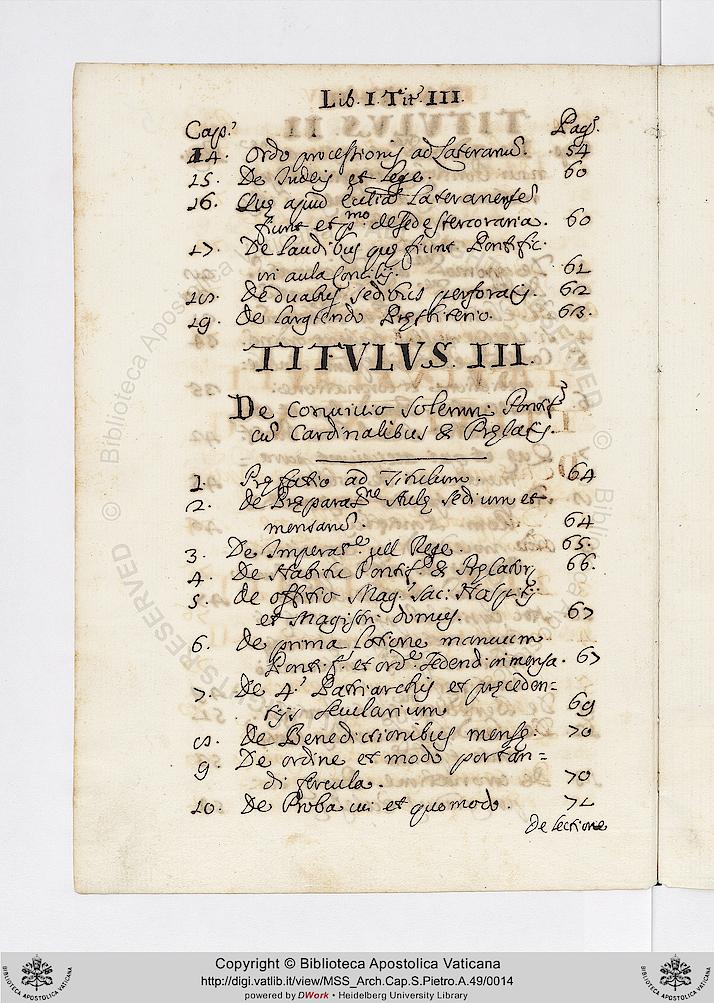 Lib. I. Tit. III.
Cap. Pag.
14. Ordo processionis ad Lateranũ. 54
15. De Iudeis et Lege. 60
16. Quę apud Eccliã Lateranensẽ
fiunt et pmo de sede stercoraria. 60
17. De laudibus quę fiunt Pontific.
in aula Concilij. 61
18. De duabus sedibus perforatis. 62
19. De largiendo Pręsbiterio. 63.
TITULVS. III.
De conuiuio solemn: Pontif
cũ Cardinalibus & Pręlatis.
1. Pręfatio ad Titulum. 64
2. De Pręparane Aulę sedium et
mensarũ. 64
3. De Imperate. uel Rege. 65.
4. De Habitu Pontif. & Pręlator 66.
5. de offitio Mag. Sac: Hospitij
et Magistri domus. 67
6. De prima lotione manuum
Pontif. et orde. sedendi in mensa. 67
7. De 4. Patriarchis et pręceden=
tijs secularium 69
8. De Benedictionibus mensę. 70
9. De ordine et modo portan=
di fercula. 70
10. De Proba cui et quomodo. 71
De lectione
Copyright © Biblioteca Apostolica Vaticana
http://digi.vatlib.it/view/MSS_Arch.Cap.S.Pietro.A.49/0014
powered by DWork • Heidelberg University Library